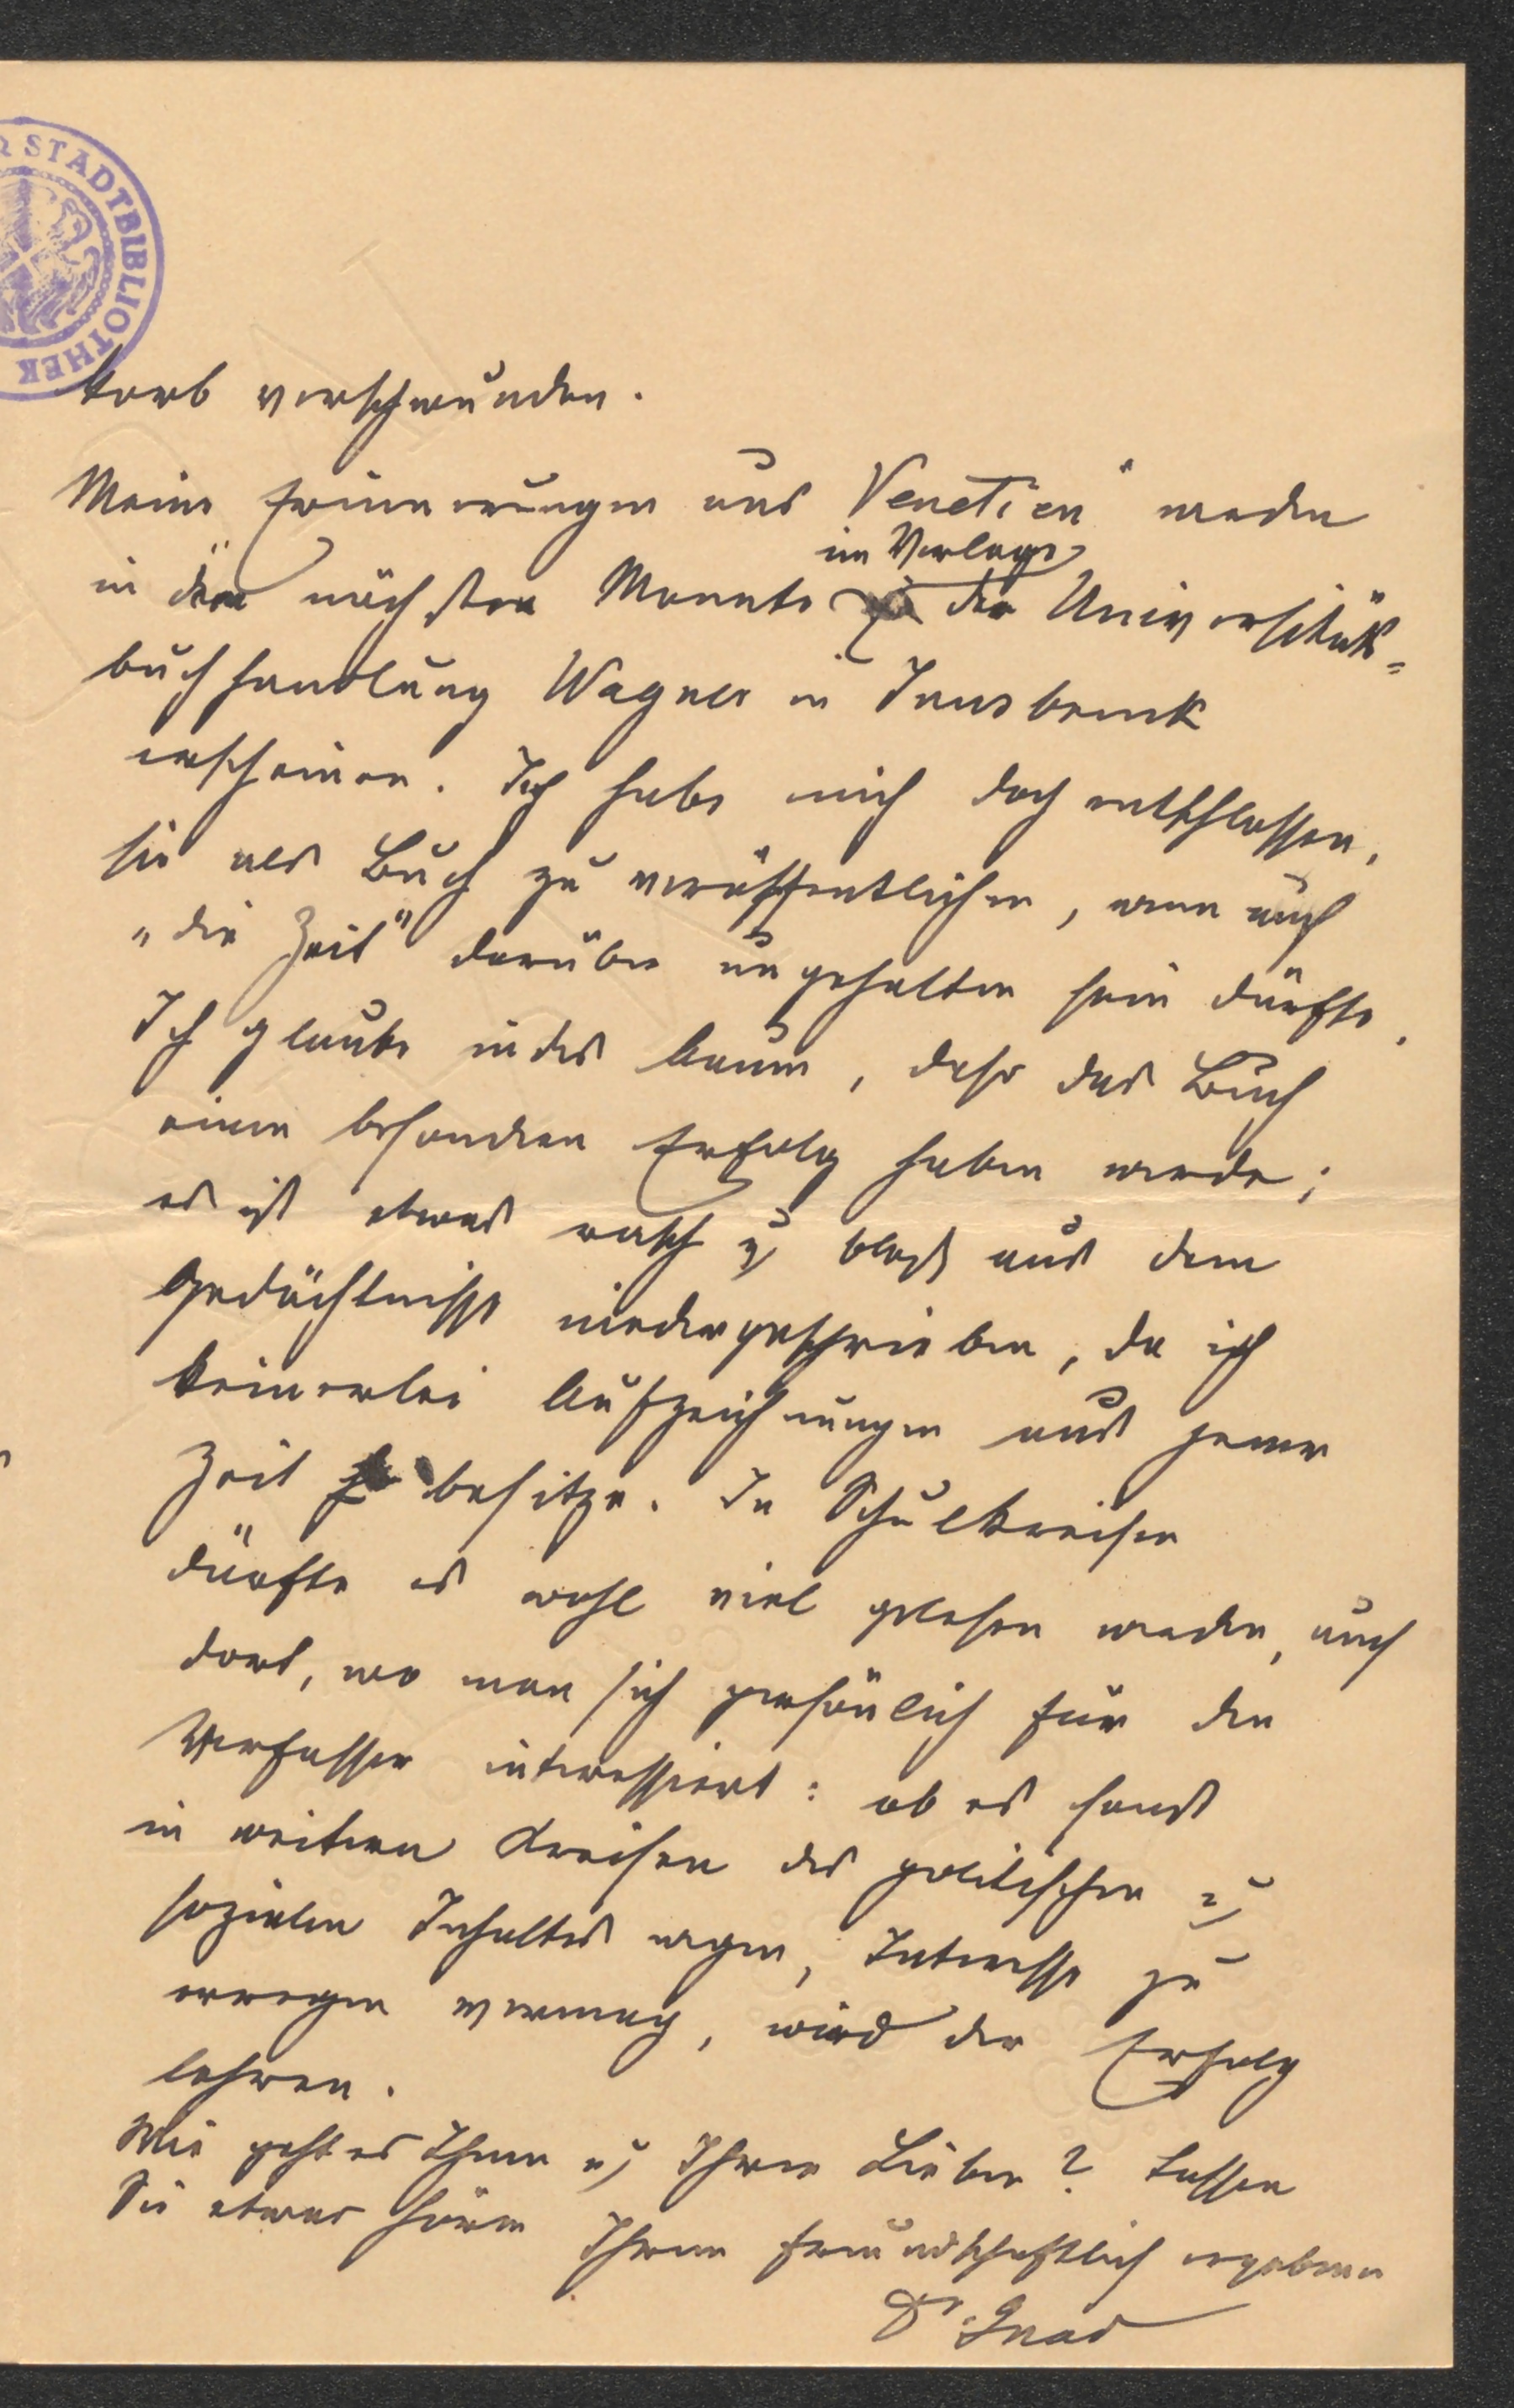 R STADTBIBLIOTHEK
korb verschwunden.
Meine Erinnerungen aus Venetien" werden
in den nächsten Monate im Verlage der Universitäts-
buchhandlung Wagner in Innsbruck
erscheinen. Ich habe mich doch entschlossen,
sie als Buch zu veröffentlichen, wenn auch
„die Zeit" darüber ungehalten sein dürfte.
Ich glaube indes kaum, dass das Buch
einen besonderen Erfolg haben werde;
es ist etwas rasch u bloß aus dem
Gedächtnisse niedergeschrieben, da ich
keinerlei Aufzeichnungen aus jener
Zeit besitze. In Schulkreisen
dürfte es wohl viel gelesen werden, auch
dort, wo man sich persönlich für den
Verfasser interessiert: ob es sonst
in weitern Kreisen des politischen u
sozialen Inhaltes wegen, Interesse zu
erregen vermag, wird der Erfolg
lehren.
Wie geht es Ihnen u Ihren Lieben? Lassen
Sie etwas hören Ihren freundschaftlich ergebenen
Dr Gnad